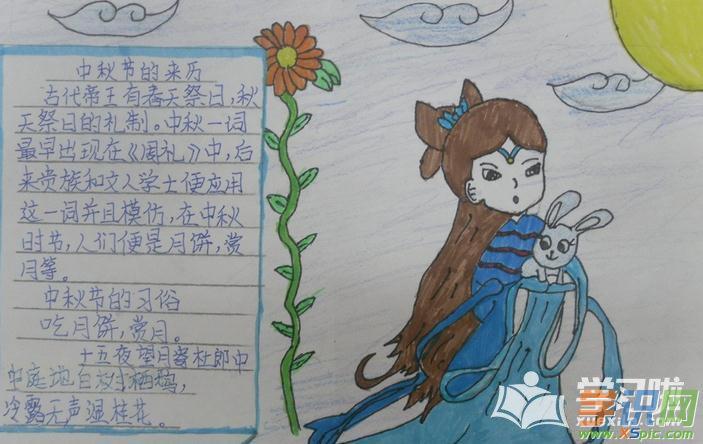 中秋节的来历
古代帝王有春天祭日，秋
天祭日的礼制。中秋一词
最早出现在《周礼》中，后
来贵族和文人学士便应用
这一词并且模仿，在中秋
时节，人们便是月饼，赏
月等。
中秋节的习俗
吃月饼，赏月。
十五夜望月寄杜郎中
中庭地白树栖鸦，
冷露无声湿桂花。
学习啦
xuexila.com
学识网
www.XSpic.com